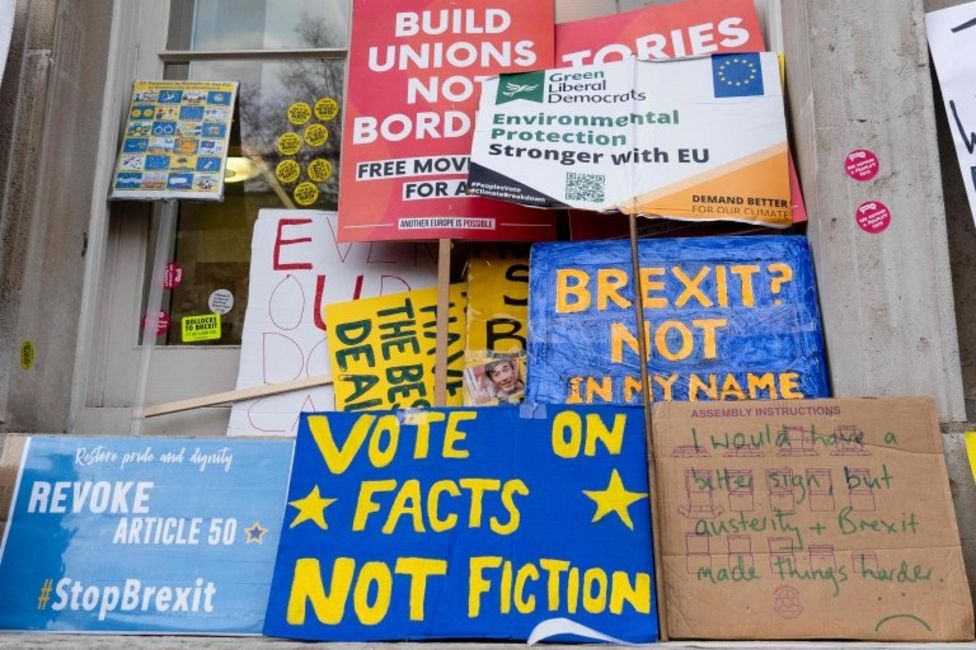 BUILD
UNIONS
NOT
BORDE
FREE MOVE
FOR A
ANOTHER EUROPE IS POSSIBLE
TORIES
Green
Liberal
Democrats
Environmental
Protection
Stronger with EU
#PeoplesVote
#ClimateBreakdown
DEMAND BETTER
FOR OUR CLIMATE
BOLLOCKS
TO BREXIT
HAVE
THE BES
DEAL
S
B
BREXIT?
NOT
IN MY NAME
Restore pride and dignity
REVOKE
ARTICLE 50
#StopBrexit
VOTE ON
FACTS
NOT FICTION
ASSEMBLY INSTRUCTIONS
I would have a
better sign, but
austerity + Brexit
made things harder.